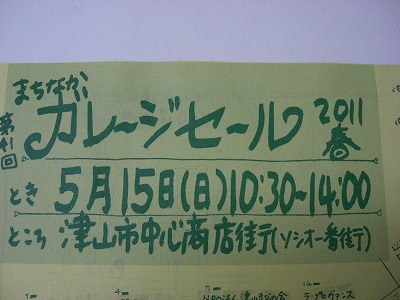 まちなか
第41回
ガレージセール 2011 春
とき 5月15日(日)10:30~14:00
ところ 津山市中心商店街(ソシオ一番街)
1
4
7
14
NPO法人